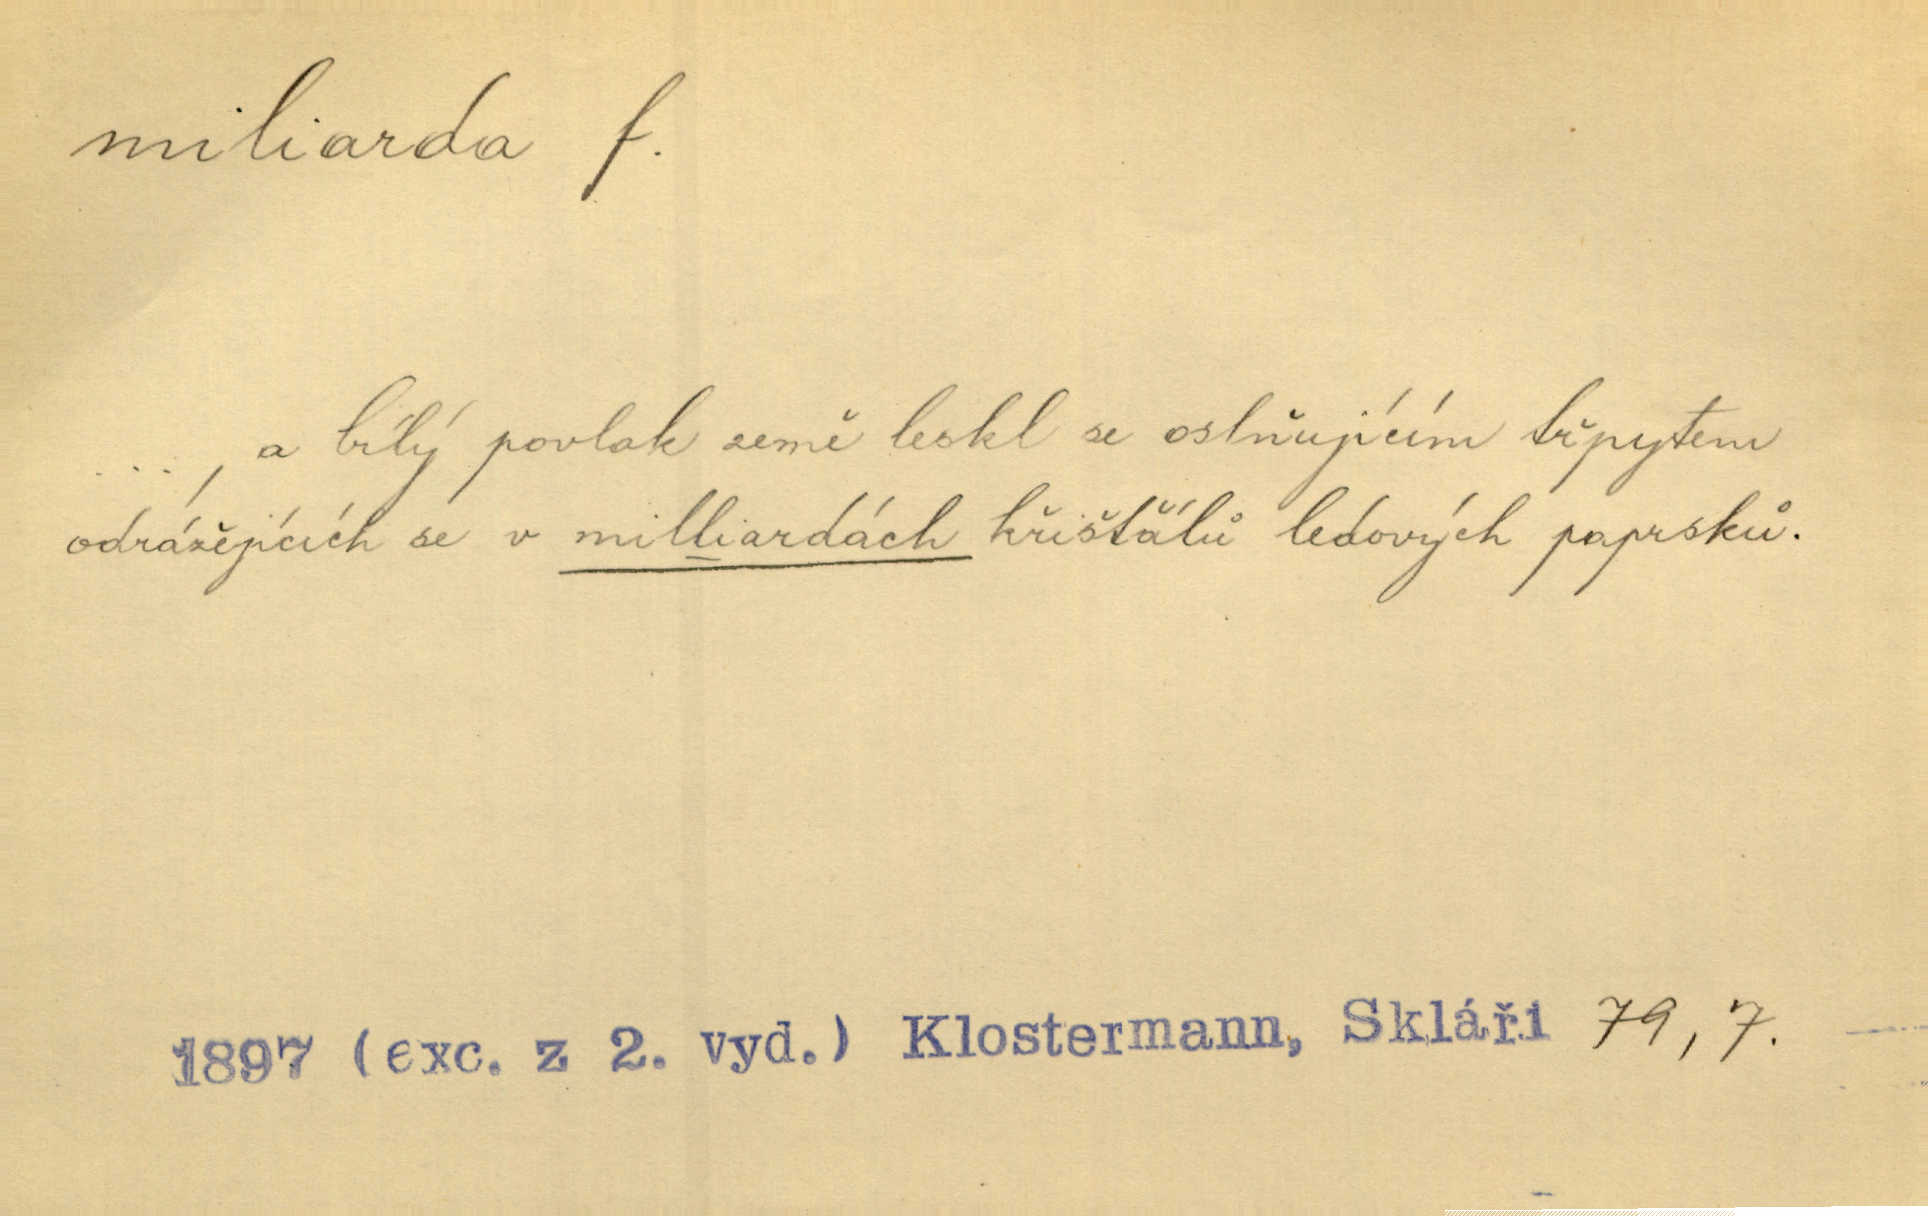 miliarda f.
..., a bílý povlak země leskl se oslňujícím třpytem
odrážějících se v milliardách křišťálů ledových paprsků.
1897 (exc. z 2. vyd.) Klostermann, Skláři 79, 7.